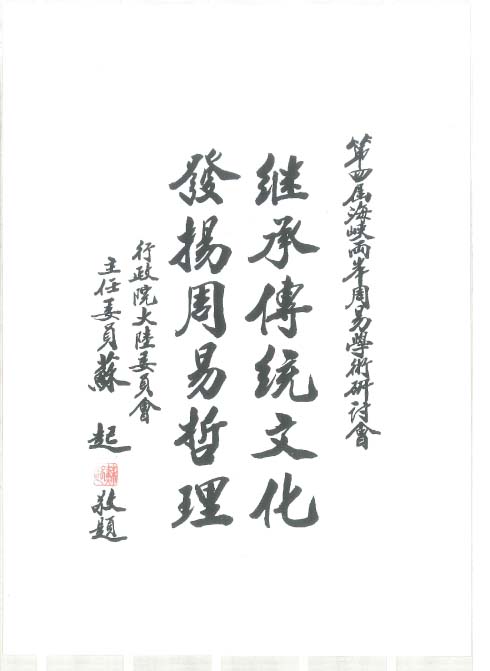 第四届海峽兩岸周易學術研討會
继承傳统文化
發揚周易哲理
行政院大陸委員會
主任委員蘇起
敬題